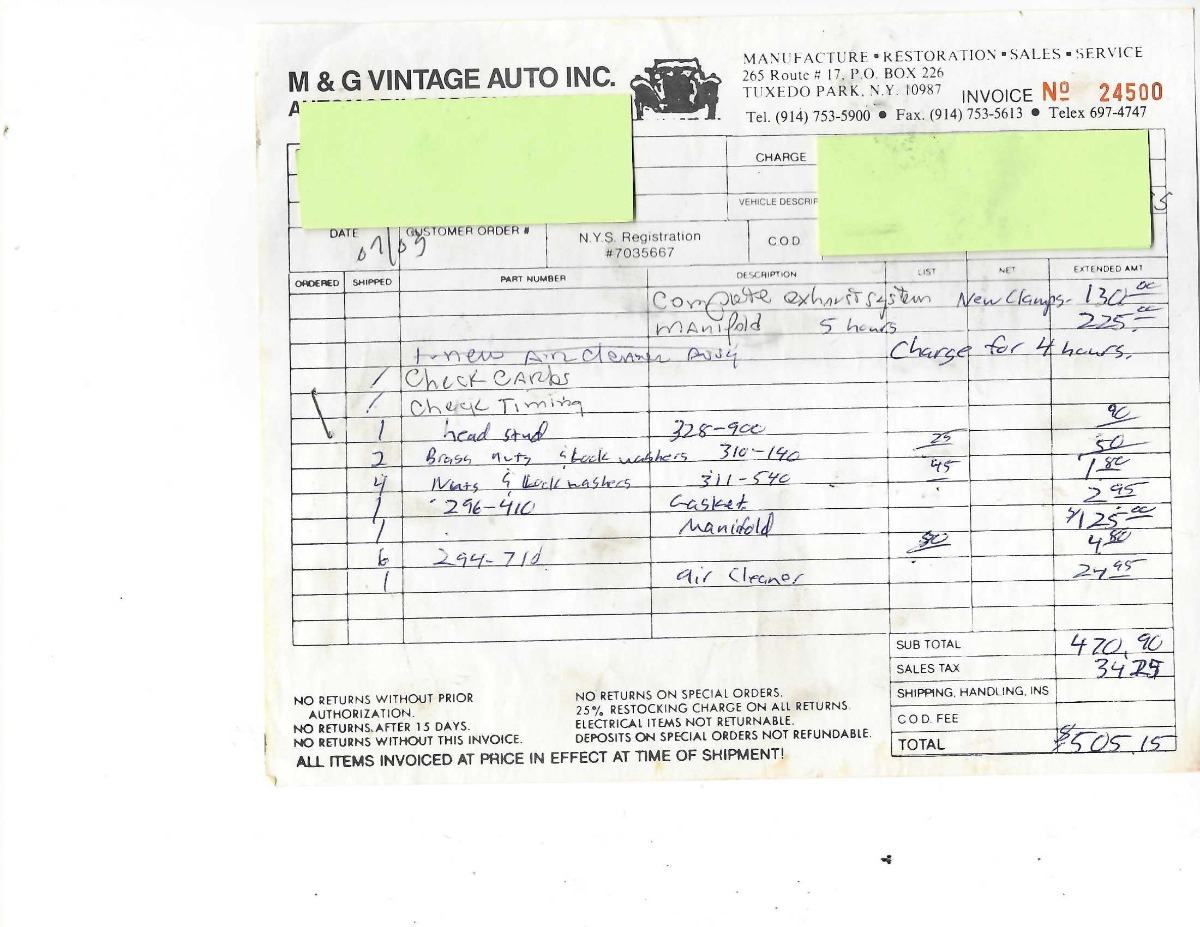 M & G VINTAGE AUTO INC.
MANUFACTURE • RESTORATION • SALES • SERVICE
265 Route # 17, P.O. BOX 226
TUXEDO PARK, N.Y. 10987
INVOICE Nº 24500
Tel. (914) 753-5900 • Fax. (914) 753-5613 • Telex 697-4747
CHARGE
VEHICLE DESCRIP
DATE 07/09 CUSTOMER ORDER # N.Y.S. Registration #7035667 C O D
ORDERED SHIPPED PART NUMBER DESCRIPTION LIST NET EXTENDED AMT
Complete exhaust system New Clamps- 130.00
Manifold 5 hours 225.00
1-new Air Cleaner Assy Charge for 4 hours.
/ Check CARbs
/ Check Timing
1 head stud 328-900 90
2 Brass nuts & lock washers 310-190 25 50
4 Nuts & lock washers 311-540 45 1 80
1 296-410 Gasket 2 95
1 Manifold $125.00
6 294-710 80 4 80
1 air cleaner 24 95
SUB TOTAL 470.90
SALES TAX 34 25
SHIPPING, HANDLING, INS
C O D. FEE
TOTAL $505.15
NO RETURNS WITHOUT PRIOR
AUTHORIZATION.
NO RETURNS AFTER 15 DAYS.
NO RETURNS WITHOUT THIS INVOICE.
NO RETURNS ON SPECIAL ORDERS.
25% RESTOCKING CHARGE ON ALL RETURNS.
ELECTRICAL ITEMS NOT RETURNABLE.
DEPOSITS ON SPECIAL ORDERS NOT REFUNDABLE.
ALL ITEMS INVOICED AT PRICE IN EFFECT AT TIME OF SHIPMENT!